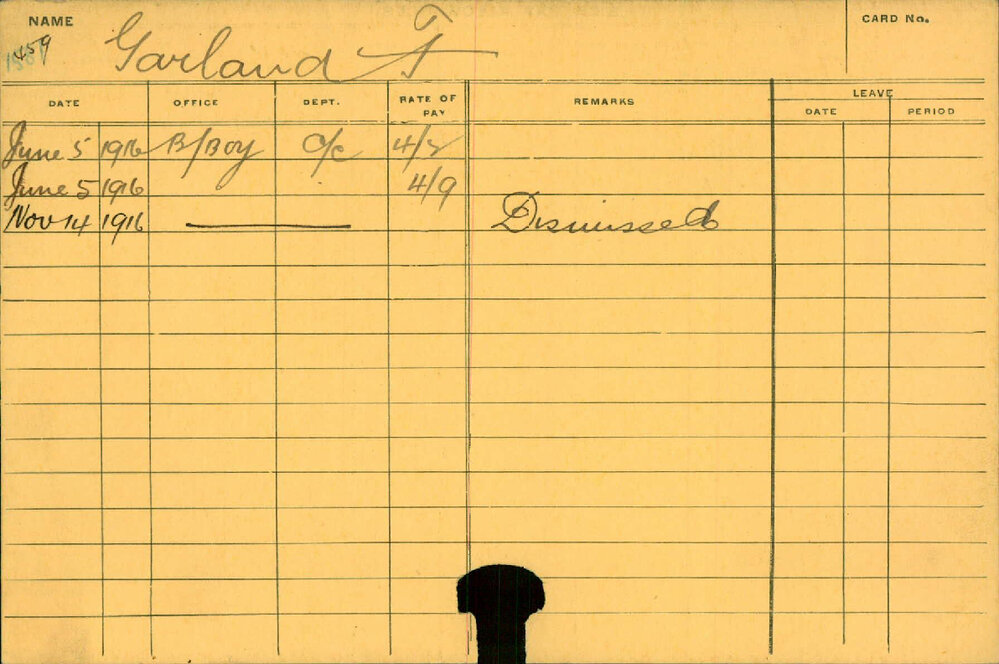 NAME
CARD No.
459
Garland F
DATE OFFICE DEPT. RATE OF PAY REMARKS LEAVE
DATE PERIOD
June 5 1916 B/Boy C/c 4/2
June 5 1916 4/9
Nov 14 1916 Dismissed